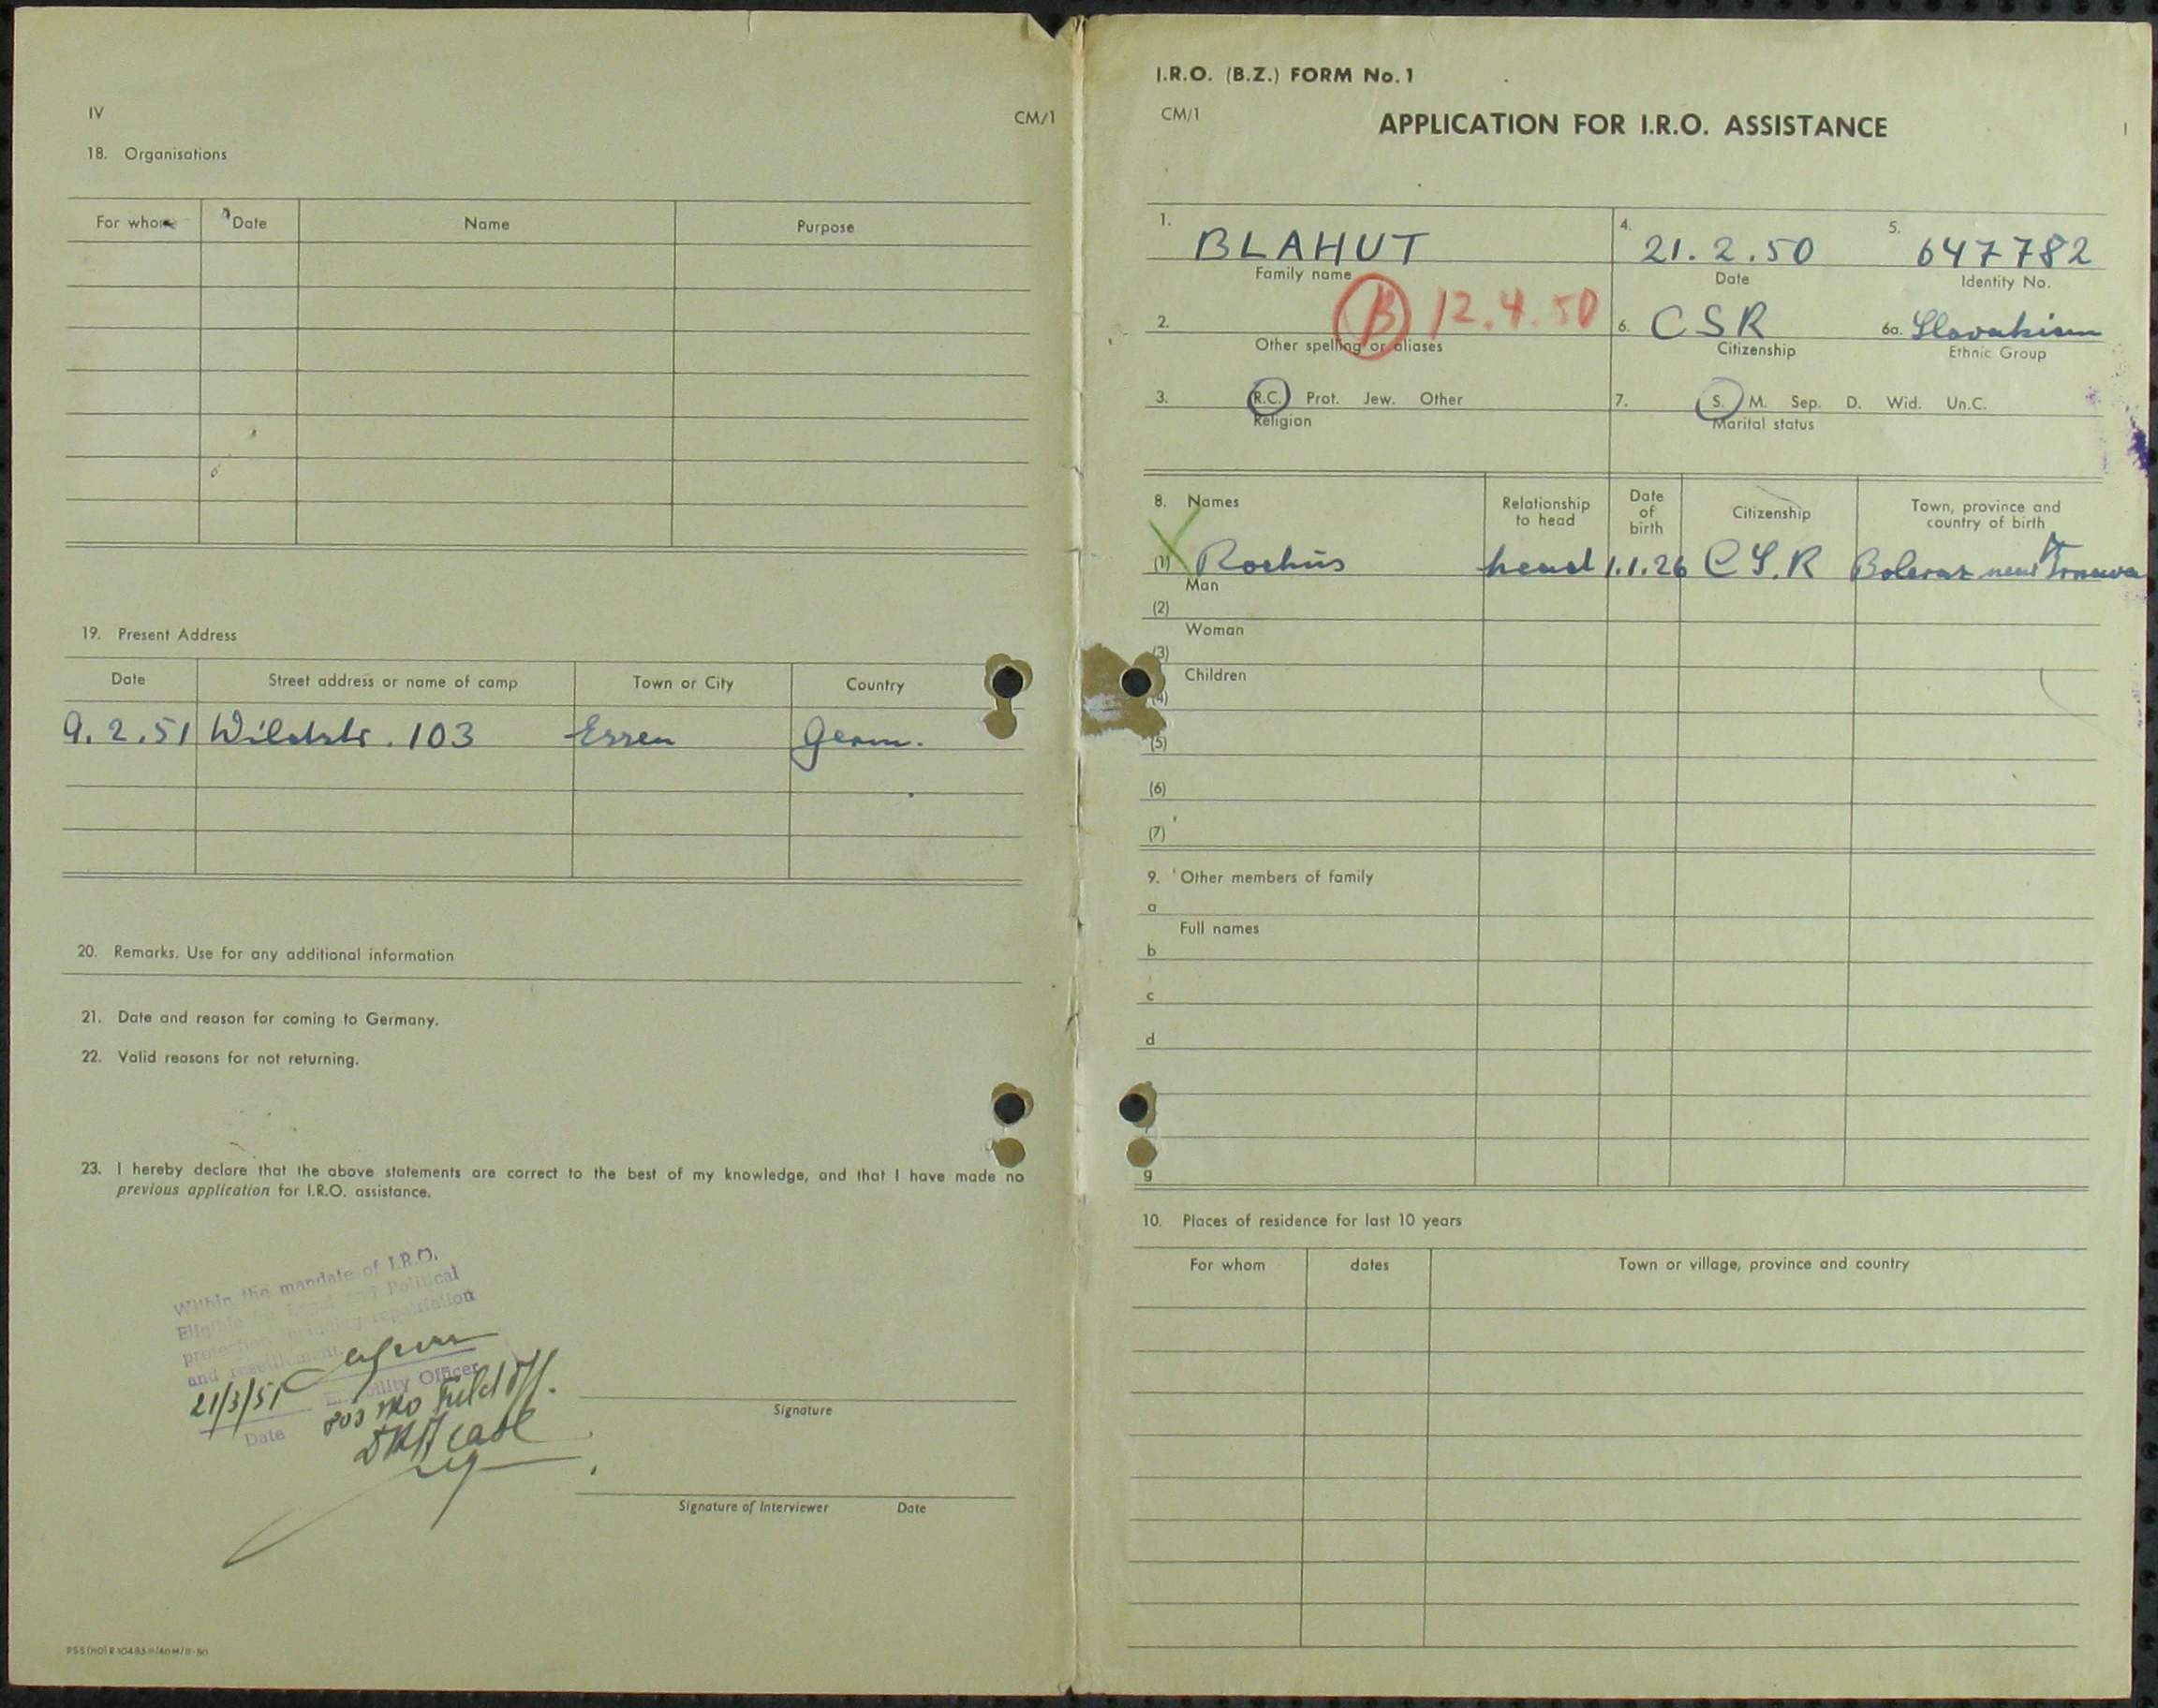 IV
CM/1
18. Organisations
For whom Date Name Purpose
19. Present Address
Date Street address or name of camp Town or City Country
9.2.51 Wildstr. 103 Essen Germ.
20. Remarks. Use for any additional information
21. Date and reason for coming to Germany.
22. Valid reasons for not returning.
23. I hereby declare that the above statements are correct to the best of my knowledge, and that I have made no
previous application for I.R.O. assistance.
Within the mandate of I.R.O.
Eligible for Legal and Political
protection including repatriation
and resettlement.
Eligibility Officer
21/3/51
Date
803 IRO Field Off.
case
Signature
Signature of Interviewer Date
I.R.O. (B.Z.) FORM No. 1
CM/1
APPLICATION FOR I.R.O. ASSISTANCE
I
1. BLAHUT 4. 21.2.50 5. 647782
Family name Date Identity No.
B 12.4.50
2. 6. CSR 6a. Slovakian
Other spelling or aliases Citizenship Ethnic Group
3. R.C. Prot. Jew. Other 7. S. M. Sep. D. Wid. Un.C.
Religion Marital status
8. Names Relationship to head Date of birth Citizenship Town, province and country of birth
(1) Rochus head 1.1.26 CS.R Boleraz near Trnawa
Man
(2)
Woman
(3)
Children
(4)
(5)
(6)
(7)
9. Other members of family
a
Full names
b
c
d
g
10. Places of residence for last 10 years
For whom dates Town or village, province and country